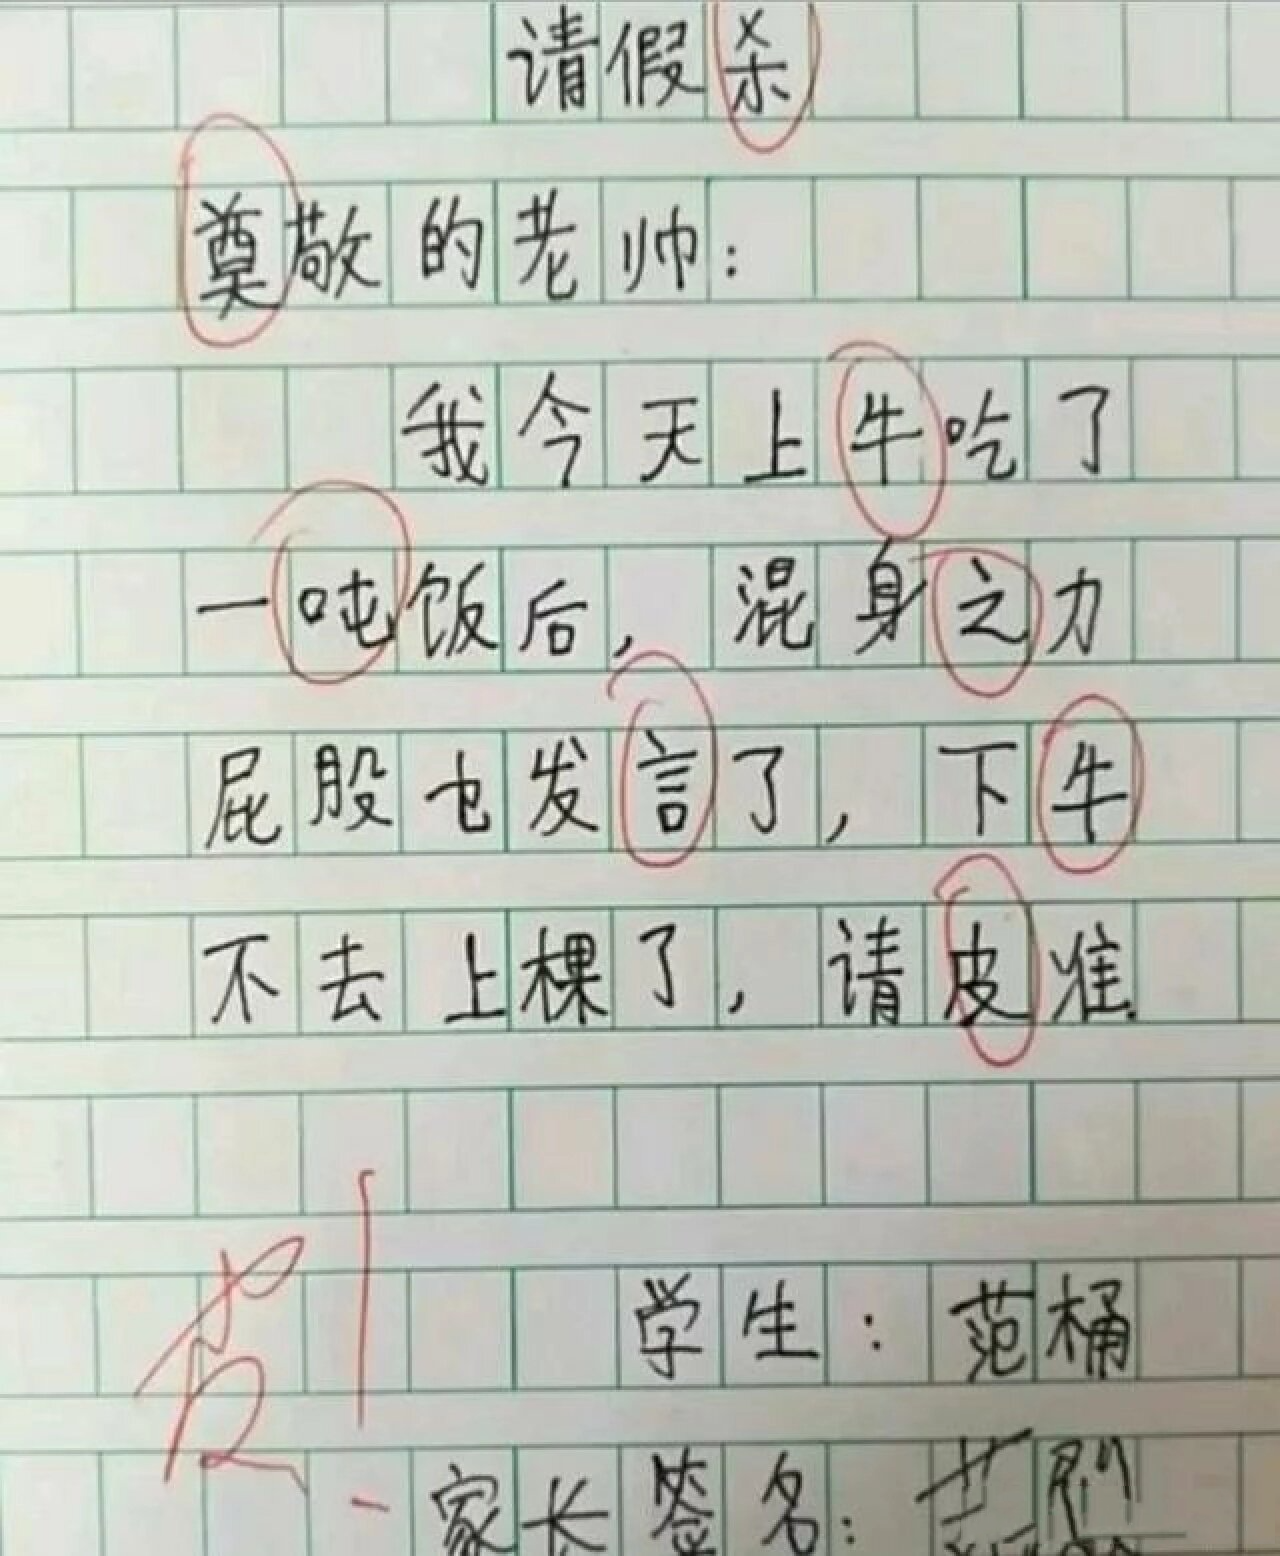 请假杀
奠敬的老帅：
我今天上牛吃了
一吨饭后，混身之力
屁股也发言了，下牛
不去上棵了，请皮准
学生：范桶
家长签名：范